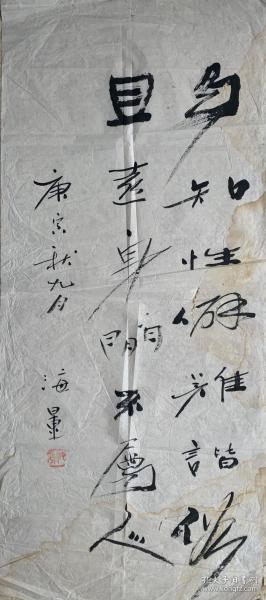 自知性僻難諧俗
且喜身閒不屬人
庚寅秋九月
海量
孔夫子旧书网